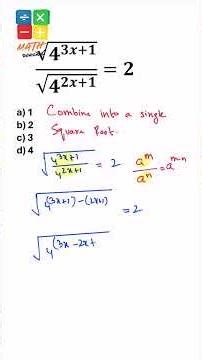 MATH
√4^(3x+1) / √4^(2x+1) = 2
a) 1
b) 2
c) 3
d) 4
Combine into a single
Square Root.
√(4^(3x+1) / 4^(2x+1)) = 2
a^m / a^n = a^(m-n)
√(4^((3x+1)-(2x+1))) = 2
√(4^(3x-2x+